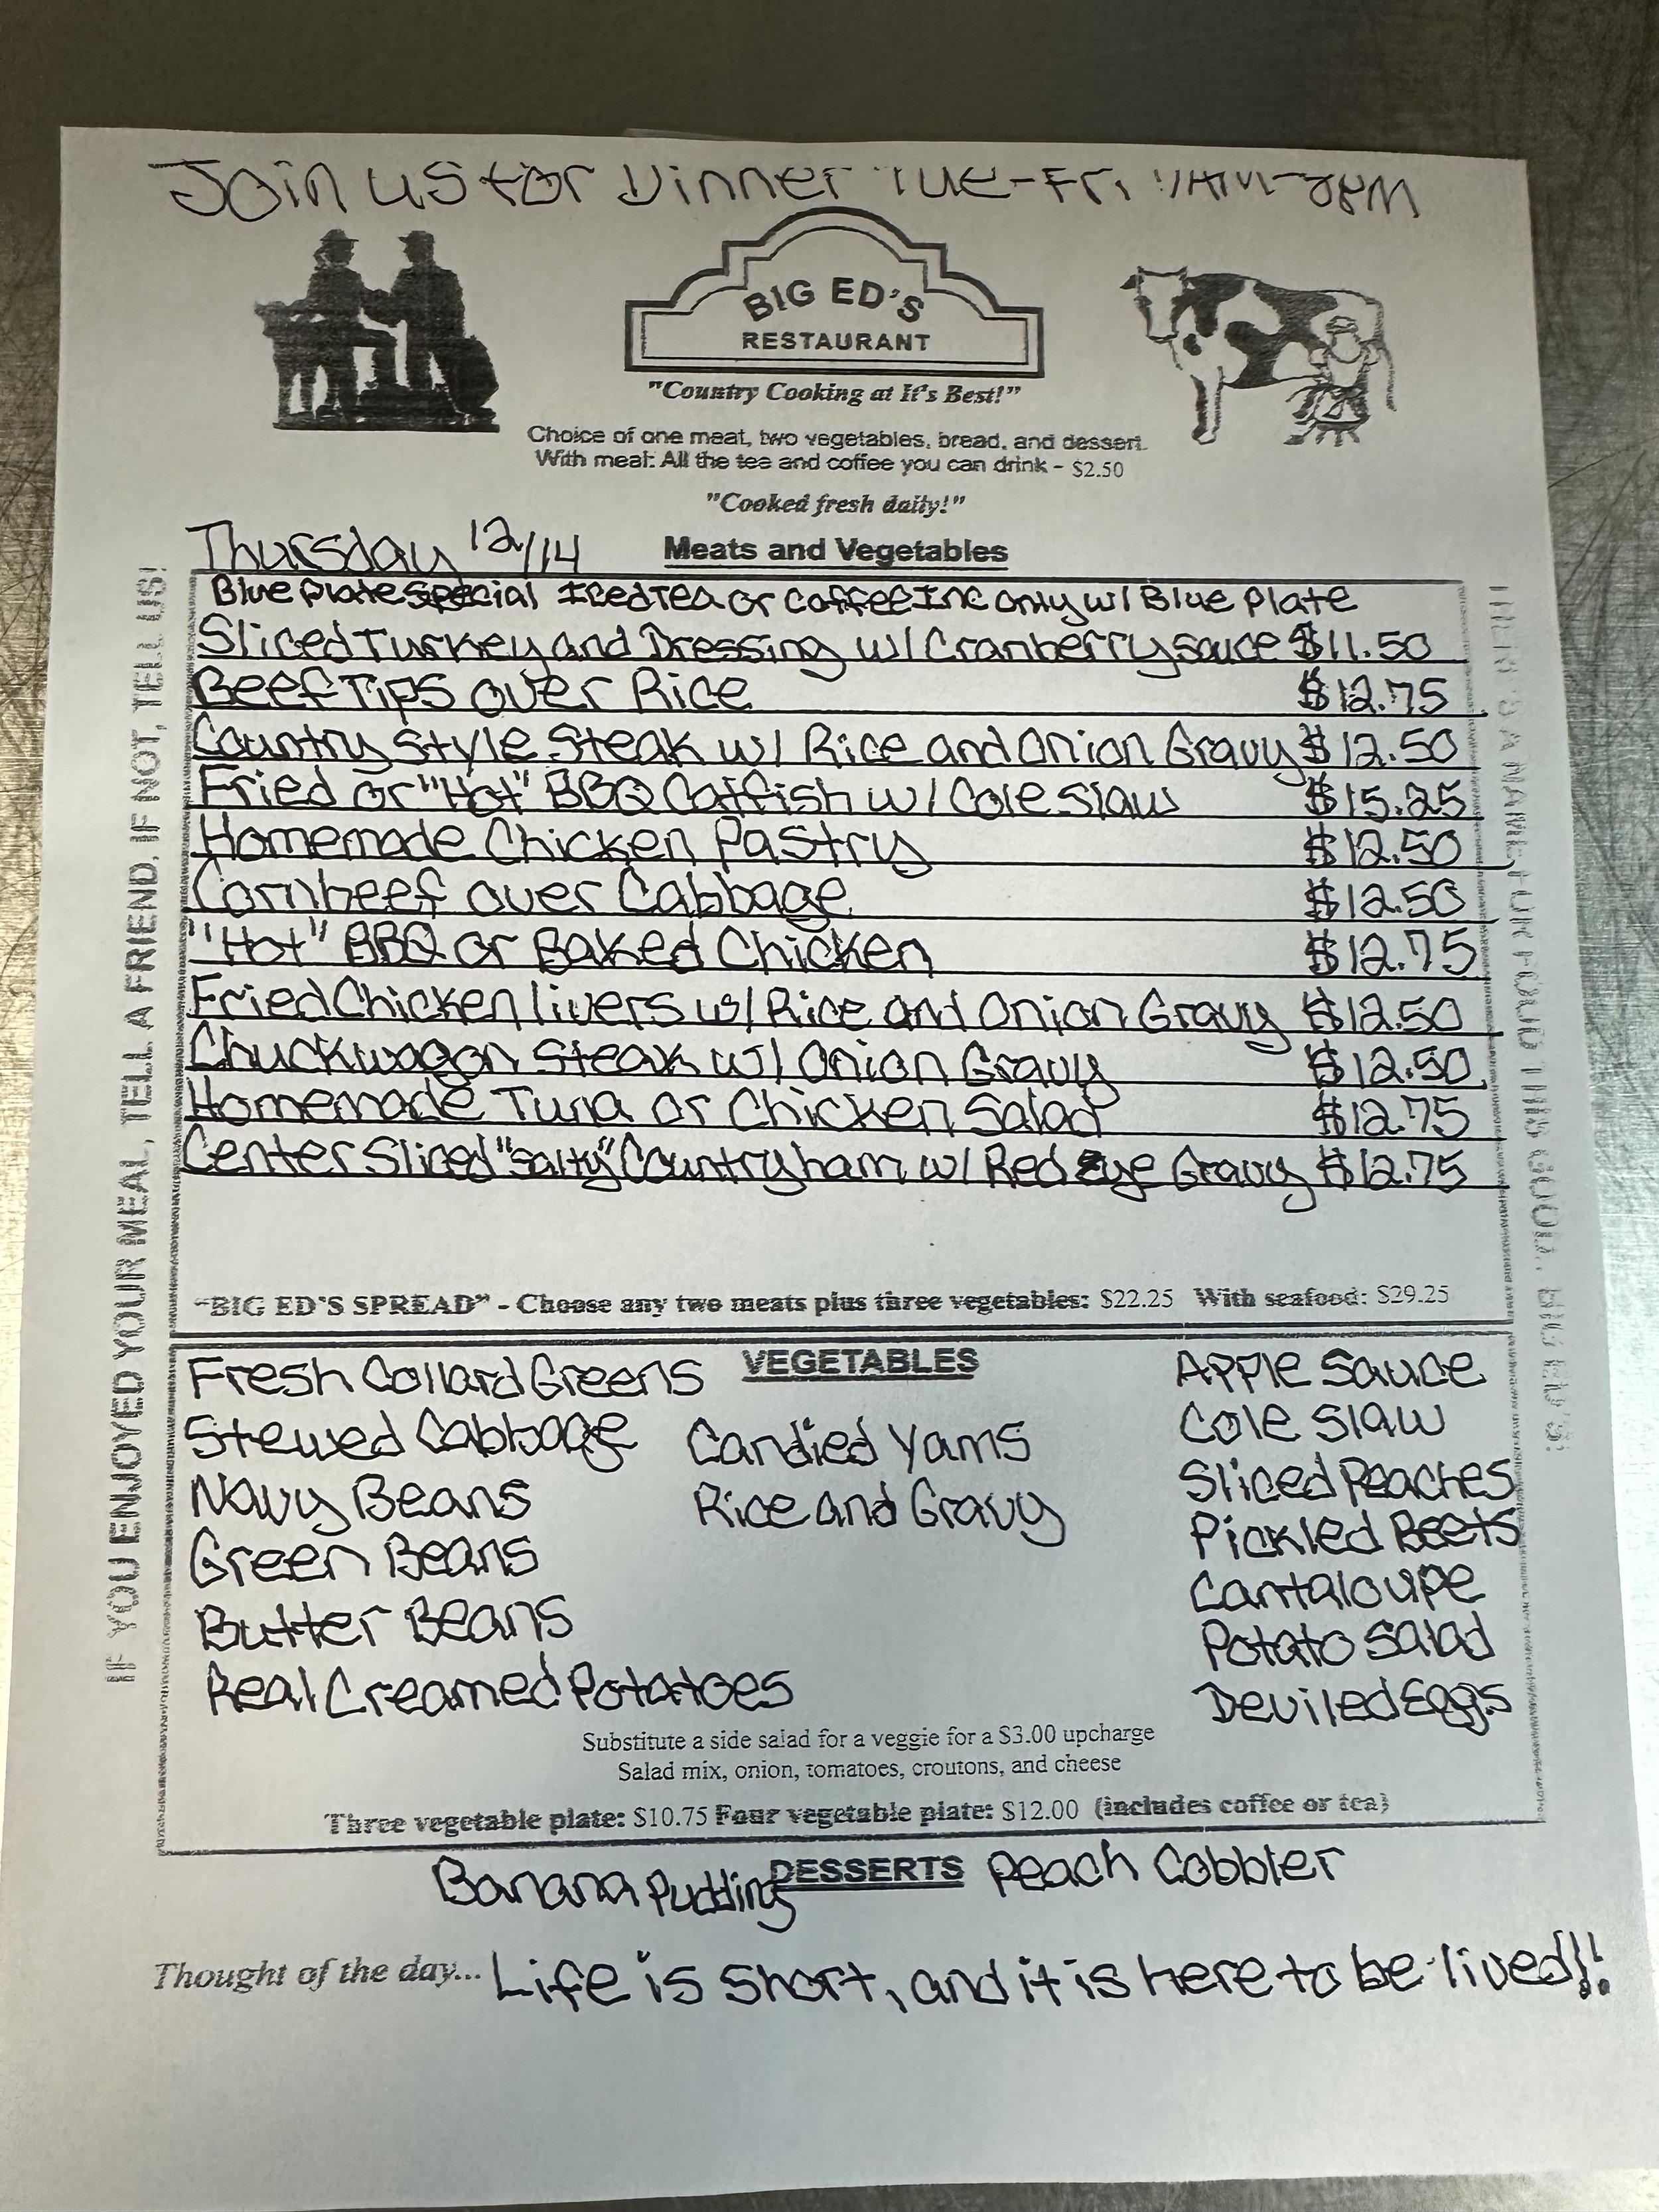 Join us for Dinner Tue-Fri 11AM-8PM
BIG ED'S
RESTAURANT
"Country Cooking at It's Best!"
Choice of one meat, two vegetables, bread, and dessert.
With meal: All the tea and coffee you can drink - $2.50
"Cooked fresh daily!"
Thursday 12/14
Meats and Vegetables
Blue Plate Special Iced Tea or Coffee Inc only w/ Blue Plate
Sliced Turkey and Dressing w/ Cranberry sauce $11.50
Beef Tips over Rice $12.75
Country Style Steak w/ Rice and Onion Gravy $12.50
Fried or "Hot" BBQ Catfish w/ Cole Slaw $15.25
Homemade Chicken Pastry $12.50
Cornbeef over Cabbage $12.50
"Hot" BBQ or Baked Chicken $12.75
Fried Chicken livers w/ Rice and Onion Gravy $12.50
Chuckwagon Steak w/ Onion Gravy $12.50
Homemade Tuna or Chicken Salad $12.75
Center Sliced "Salty" Country ham w/ Red Eye Gravy $12.75
"BIG ED'S SPREAD" - Choose any two meats plus three vegetables: $22.25 With seafood: $29.25
IF YOU ENJOYED YOUR MEAL, TELL A FRIEND. IF NOT, TELL US!
THERE'S A NAME FOR FOOD THIS GOOD... BIG ED'S!
VEGETABLES
Fresh Collard Greens
Stewed Cabbage
Navy Beans
Green Beans
Butter Beans
Real Creamed Potatoes
Candied Yams
Rice and Gravy
Apple Sauce
Cole Slaw
Sliced Peaches
Pickled Beets
Cantaloupe
Potato Salad
Deviled Eggs
Substitute a side salad for a veggie for a $3.00 upcharge
Salad mix, onion, tomatoes, croutons, and cheese
Three vegetable plate: $10.75 Four vegetable plate: $12.00 (includes coffee or tea)
DESSERTS
Banana Pudding
Peach Cobbler
Thought of the day... Life is short, and it is here to be lived!!